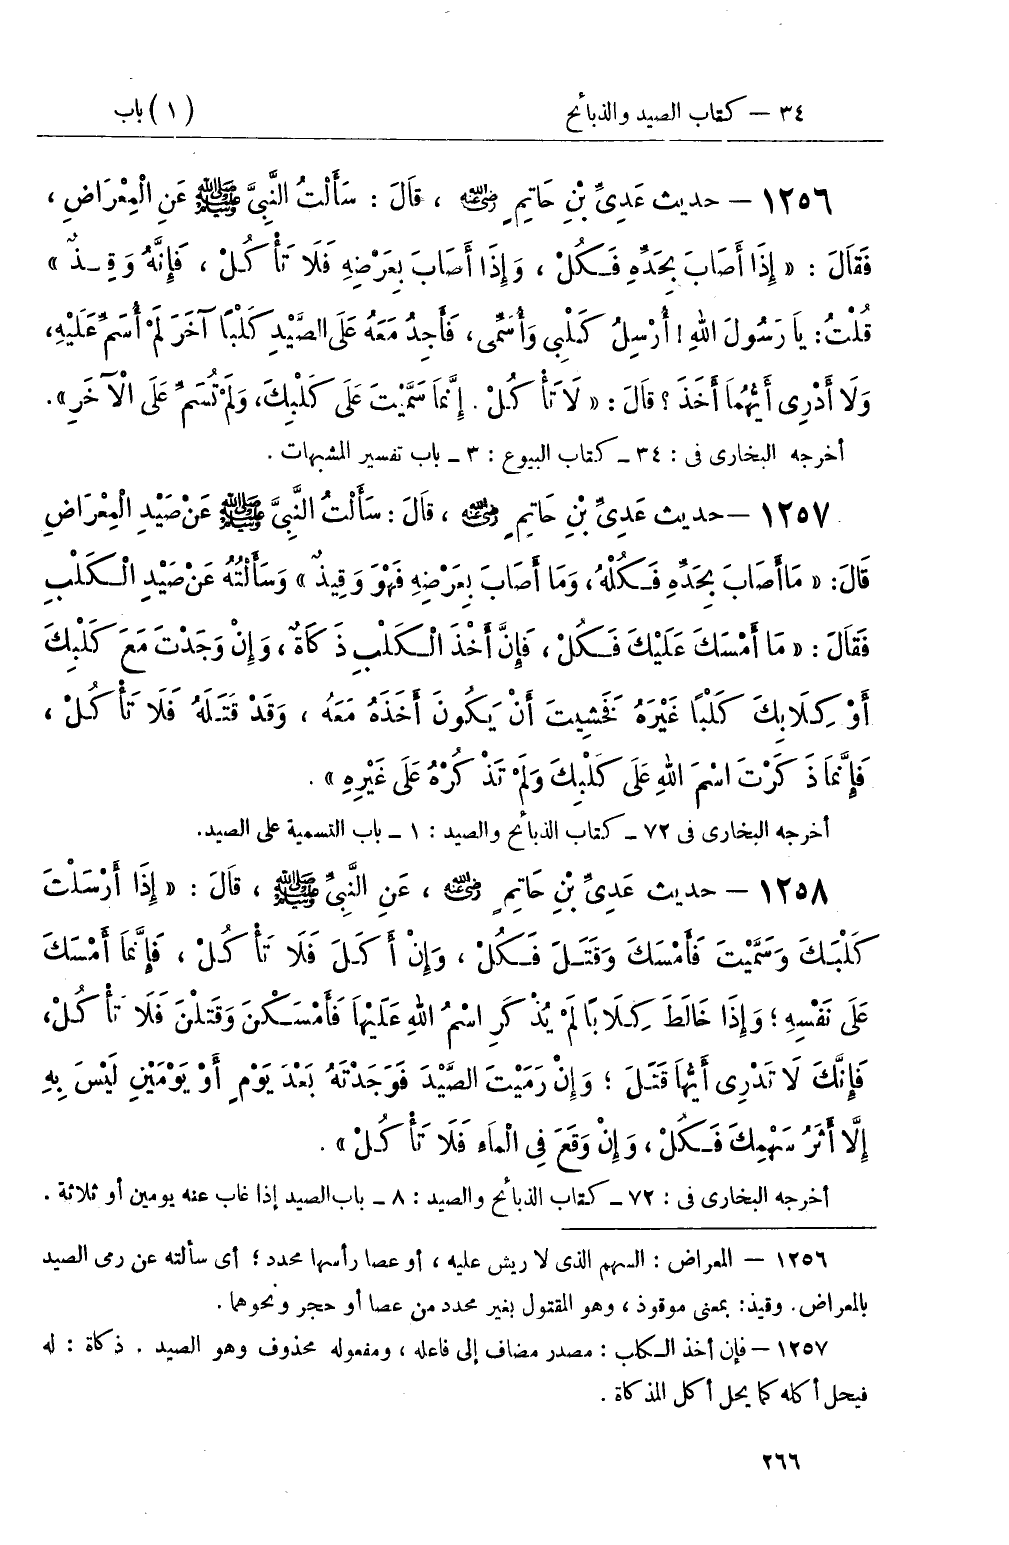 ٣٤ – كتاب الصيد والذبائح (١) باب
١٢٥٦ – حديث عَدِىِّ بْنِ حَاتِمٍ رضي الله عنه ، قَالَ : سَأَلْتُ النَّبِىَّ ﷺ عَنِ الْمِعْرَاضِ ،
فَقَالَ : « إِذَا أَصَابَ بِحَدِّهِ فَكُلْ ، وَإِذَا أَصَابَ بِعَرْضِهِ فَلَا تَأْكُلْ ، فَإِنَّهُ وَقِيذٌ »
قُلْتُ: يَا رَسُولَ اللهِ ! أُرْسِلُ كَلْبِى وَأُسَمِّى، فَأَجِدُ مَعَهُ عَلَى الصَّيْدِ كَلْبًا آخَرَ لَمْ أُسَمِّ عَلَيْهِ،
وَلَا أَدْرِى أَيُّهُمَا أَخَذَ ؟ قَالَ : « لَا تَأْكُلْ . إِنَّمَا سَمَّيْتَ عَلَى كَلْبِكَ، وَلَمْ تُسَمِّ عَلَى الْآخَرِ ».
أخرجه البخارى فى : ٣٤ ـ كتاب البيوع : ٣ ـ باب تفسير المشبهات .
١٢٥٧ – حديث عَدِىِّ بْنِ حَاتِمٍ رضي الله عنه ، قَالَ : سَأَلْتُ النَّبِىَّ ﷺ عَنْ صَيْدِ الْمِعْرَاضِ
قَالَ: « مَا أَصَابَ بِحَدِّهِ فَكُلْهُ، وَمَا أَصَابَ بِعَرْضِهِ فَهْوَ وَقِيذٌ » وَسَأَلْتُهُ عَنْ صَيْدِ الْكَلْبِ
فَقَالَ : « مَا أَمْسَكَ عَلَيْكَ فَكُلْ ، فَإِنَّ أَخْذَ الْكَلْبِ ذَكَاةٌ ، وَإِنْ وَجَدْتَ مَعَ كَلْبِكَ
أَوْ كِلَابِكَ كَلْبًا غَيْرَهُ فَخَشِيتَ أَنْ يَكُونَ أَخَذَهُ مَعَهُ ، وَقَدْ قَتَلَهُ فَلَا تَأْكُلْ ،
فَإِنَّمَا ذَكَرْتَ اسْمَ اللهِ عَلَى كَلْبِكَ وَلَمْ تَذْكُرْهُ عَلَى غَيْرِهِ » .
أخرجه البخارى فى ٧٢ ـ كتاب الذبائح والصيد : ١ ـ باب التسمية على الصيد.
١٢٥٨ – حديث عَدِىِّ بْنِ حَاتِمٍ رضي الله عنه ، عَنِ النَّبِىِّ ﷺ ، قَالَ : « إِذَا أَرْسَلْتَ
كَلْبَكَ وَسَمَّيْتَ فَأَمْسَكَ وَقَتَلَ فَكُلْ ، وَإِنْ أَكَلَ فَلَا تَأْكُلْ ، فَإِنَّمَا أَمْسَكَ
عَلَى نَفْسِهِ ؛ وَإِذَا خَالَطَ كِلَابًا لَمْ يُذْكَرِ اسْمُ اللهِ عَلَيْهَا فَأَمْسَكْنَ وَقَتَلْنَ فَلَا تَأْكُلْ،
فَإِنَّكَ لَا تَدْرِى أَيُّهَا قَتَلَ ؛ وَإِنْ رَمَيْتَ الصَّيْدَ فَوَجَدْتَهُ بَعْدَ يَوْمٍ أَوْ يَوْمَيْنِ لَيْسَ بِهِ
إِلَّا أَثَرُ سَهْمِكَ فَكُلْ ، وَإِنْ وَقَعَ فِى الْمَاءِ فَلَا تَأْكُلْ » .
أخرجه البخارى فى : ٧٢ ـ كتاب الذبائح والصيد : ٨ ـ باب الصيد إذا غاب عنه يومين أو ثلاثة .
١٢٥٦ – المعراض : السهم الذى لا ريش عليه ، أو عصا رأسها محدد ؛ أى سألته عن رمى الصيد
بالمعراض. وقيذ: بمعنى موقوذ ، وهو المقتول بغير محدد من عصا أو حجر ونحوهما .
١٢٥٧ – فإن أخذ الكلب : مصدر مضاف إلى فاعله ، ومفعوله محذوف وهو الصيد . ذكاة : له
فيحل أكله كما يحل أكل المذكاة .
٢٦٦